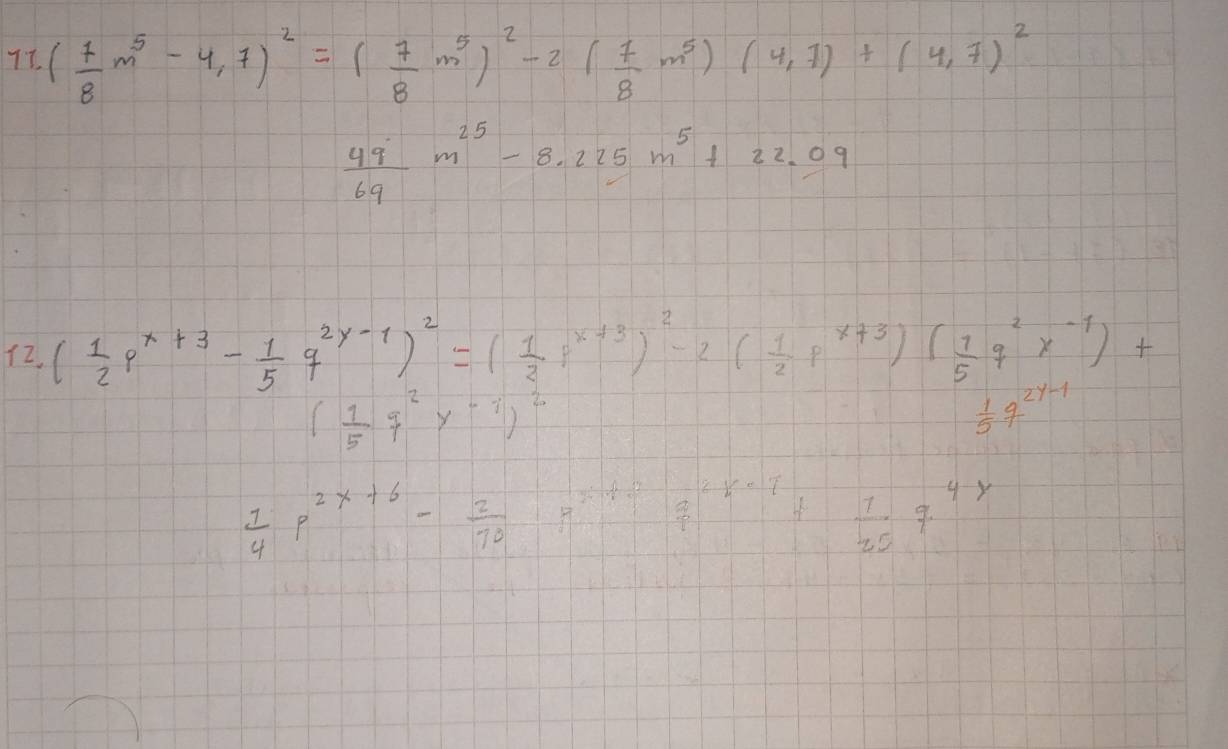 11. (7/8 m^5 - 4,7)^2 = (7/8 m^5)^2 - 2 (7/8 m^5) (4,7) + (4,7)^2
49/69 m^25 - 8.225 m^5 + 22.09
12. (1/2 p^x+3 - 1/5 q^2y-1)^2 = (1/2 p^x+3)^2 - 2 (1/2 p^x+3) (1/5 q^2 y^-1) +
(1/5 q^2 y^-1)^2
1/5 q^2y-1
1/4 p^2x+6 - 2/10 p^x+3 q^2y-1 + 1/25 q^4y